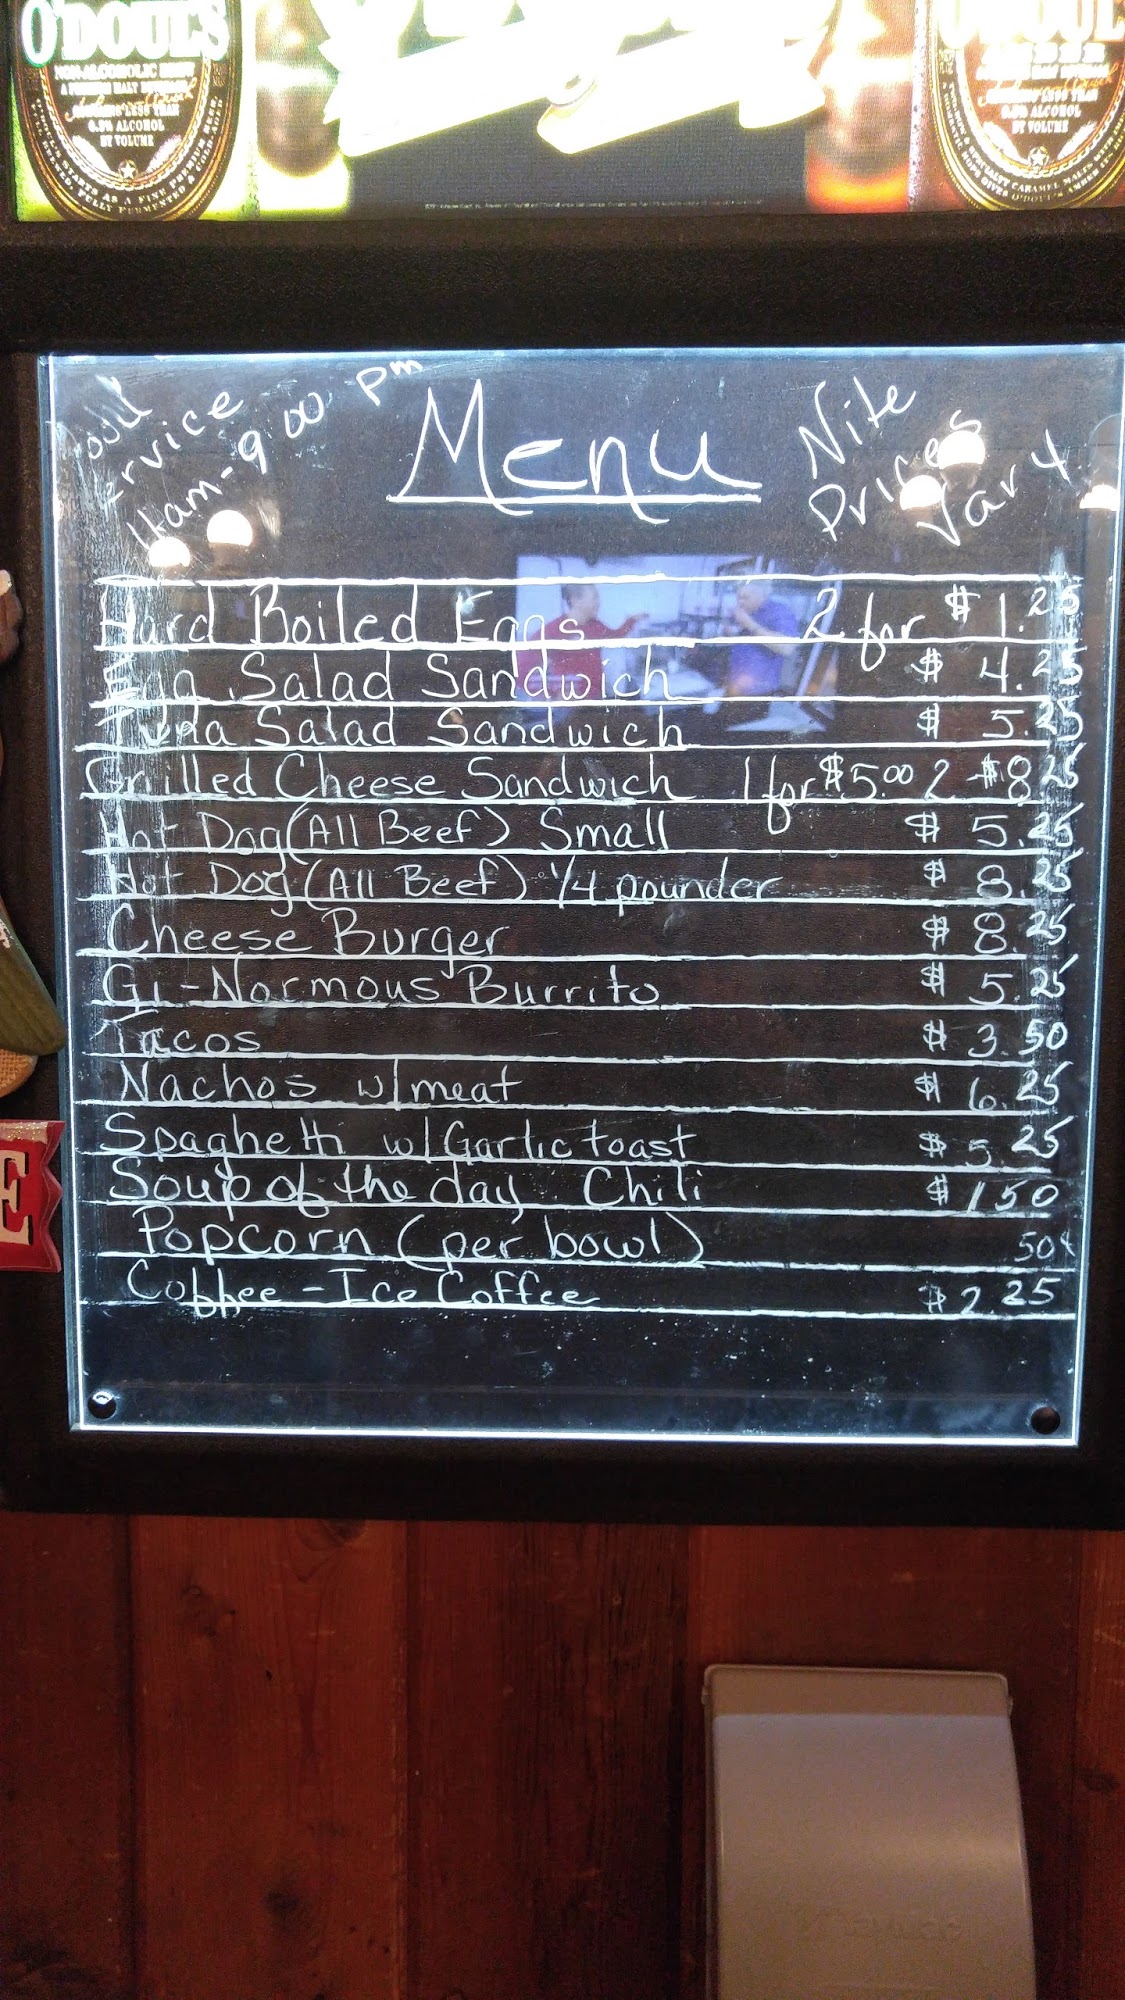 O'DOUL'S
NON-ALCOHOLIC BREW
A PREMIUM MALT BEVERAGE
CONTAINS LESS THAN
0.5% ALCOHOL
BY VOLUME
O'DOUL'S
CONTAINS LESS THAN
0.5% ALCOHOL
BY VOLUME
Food
Service
11am-9 00 pm
Menu
Nite
Prices
Vary
Hard Boiled Eggs 2 for $1.25
Egg Salad Sandwich $4.25
Tuna Salad Sandwich $5.25
Grilled Cheese Sandwich 1 for $5.00 2 $8.25
Hot Dog (All Beef) Small $5.25
Hot Dog (All Beef) 1/4 pounder $8.25
Cheese Burger $8.25
Gi-Normous Burrito $5.25
Tacos $3.50
Nachos w/meat $6.25
Spaghetti w/Garlic toast $5.25
Soup of the day. Chili $1 50
Popcorn (per bowl) 50¢
Coffee - Ice Coffee $2.25
E